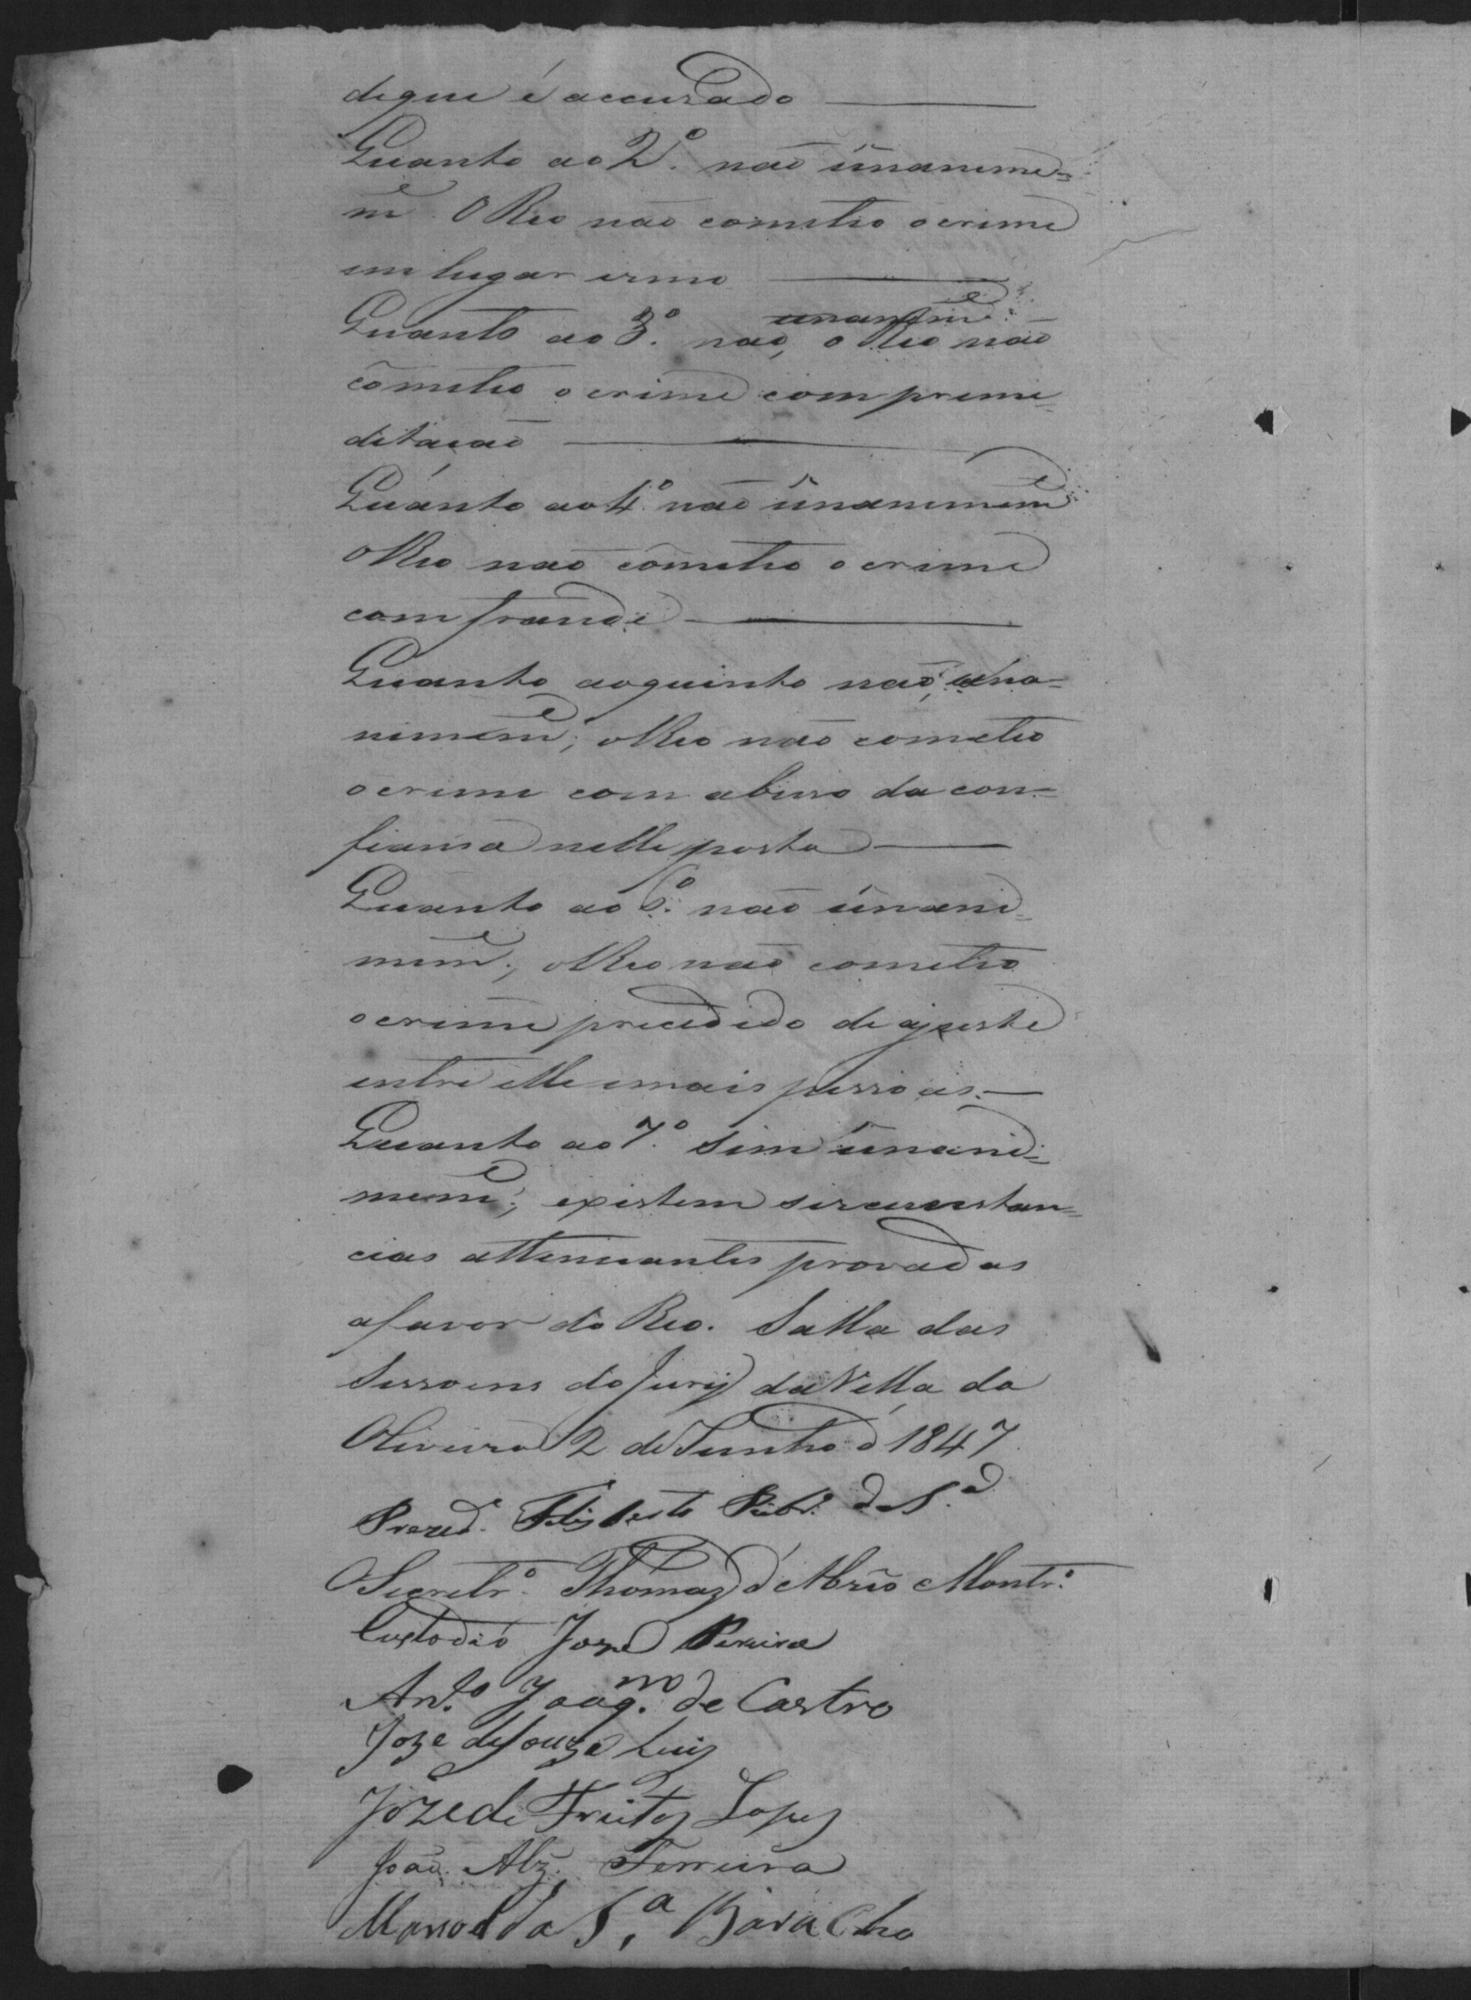 de que é accusado
Quanto ao 2.º não unanime=
m.e O Reo não cometeo o crime
em lugar ermo
unanim.e
Quanto ao 3.º não, o Reo não
cometeo o crime com preme=
ditação
Quanto ao 4.º não unanimem.e
o Reo não cometeo o crime
com fraude
Quanto ao quinto não, una=
nimem.e; o Reo não cometeo
o crime com abuso da con=
fiansa nelle posta
Quanto ao 6.º não unani=
mem.e; o Reo não cometeo
o crime precedido de ajuste
entre elle e mais pessoas.
Quanto ao 7.º sim unani=
mem.e; existem sircunstan=
cias attenuantes provadas
a favor do Reo. Salla das
Sessoens do Jury da Villa da
Oliveira 2 de Junho d 1847
Prezid.e Felisberto Rib.º d S.ª
O Secretr.º Thomaz d'Abrêo Montr.º
Custodio Joze Pereira
Ant.º Joaq.m de Castro
Joze de Souza Luis
Joze de Freitas Lopes
João Alz. Ferreira
Manoel da S.ª Baracho